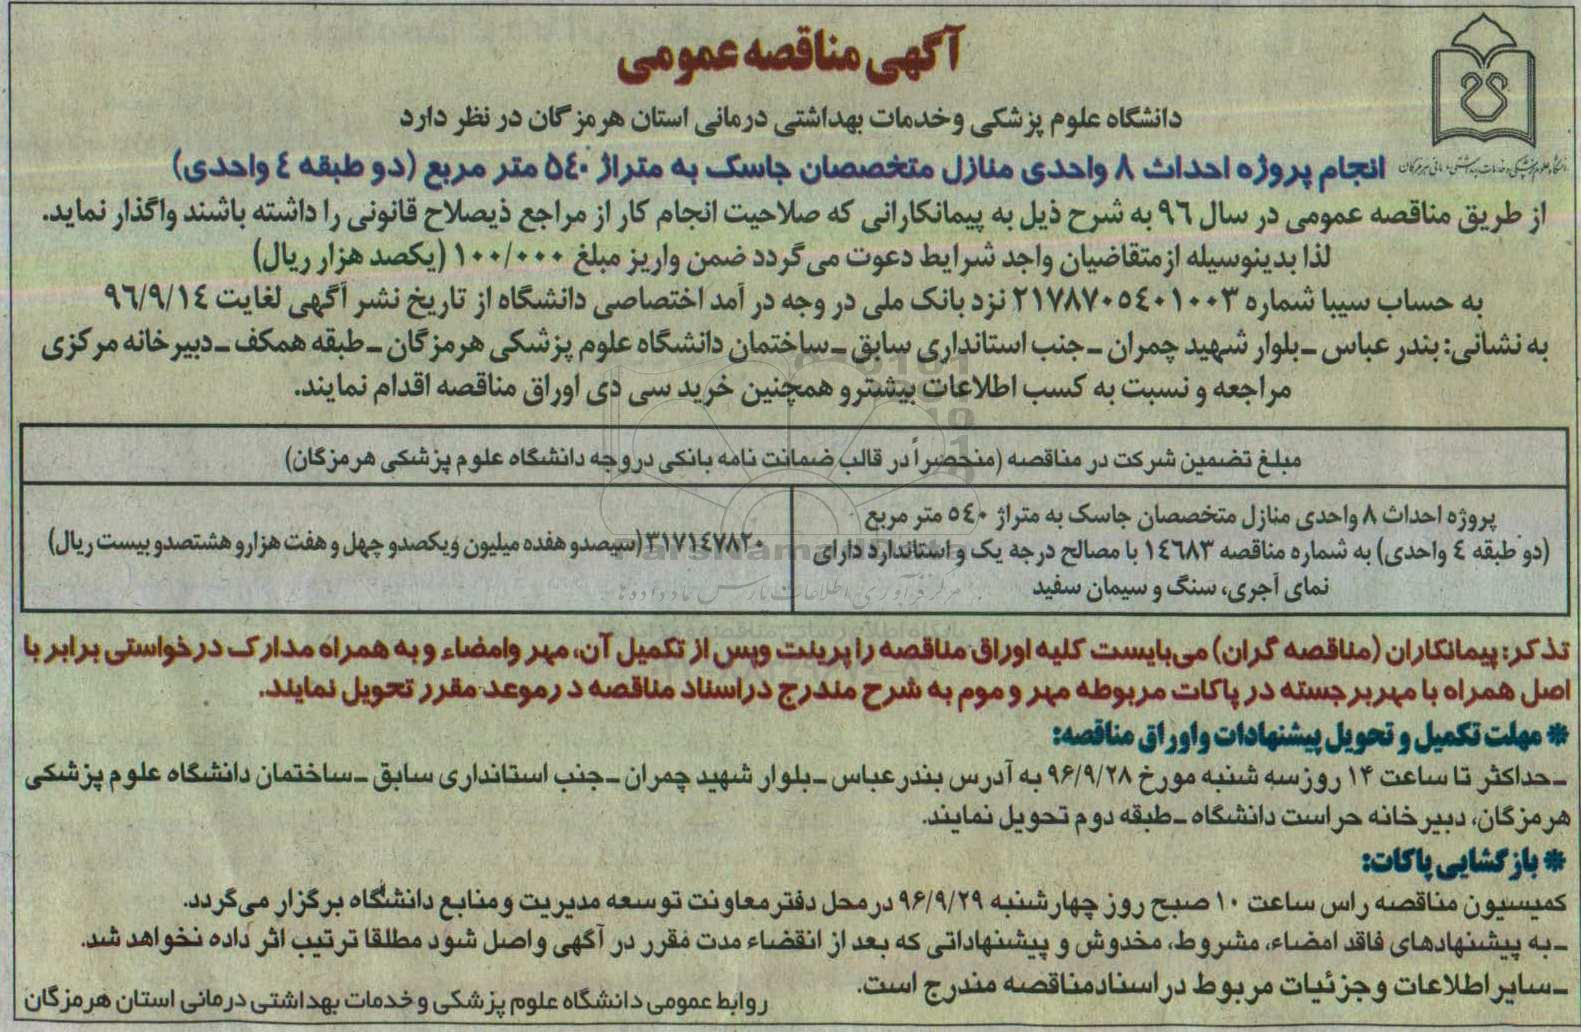 آگهی مناقصه عمومی
دانشگاه علوم پزشکی وخدمات بهداشتی درمانی استان هرمزگان در نظر دارد
انجام پروژه احداث ۸ واحدی منازل متخصصان جاسک به متراژ ٥٤٠ متر مربع (دو طبقه ٤ واحدی)
از طریق مناقصه عمومی در سال ٩٦ به شرح ذیل به پیمانکارانی که صلاحیت انجام کار از مراجع ذیصلاح قانونی را داشته باشند واگذار نماید.
لذا بدینوسیله ازمتقاضیان واجد شرایط دعوت می‌گردد ضمن واریز مبلغ ١٠٠/٠٠٠ (یکصد هزار ریال)
به حساب سیبا شماره ٢١٧٨٧٠٥٤٠١٠٠٣ نزد بانک ملی در وجه در آمد اختصاصی دانشگاه از تاریخ نشر آگهی لغایت ٩٦/٩/١٤
به نشانی: بندر عباس ـ بلوار شهید چمران ـ جنب استانداری سابق ـ ساختمان دانشگاه علوم پزشکی هرمزگان ـ طبقه همکف ـ دبیرخانه مرکزی
مراجعه و نسبت به کسب اطلاعات بیشترو همچنین خرید سی دی اوراق مناقصه اقدام نمایند.
مبلغ تضمین شرکت در مناقصه (منحصراً در قالب ضمانت نامه بانکی دروجه دانشگاه علوم پزشکی هرمزگان)
پروژه احداث ۸ واحدی منازل متخصصان جاسک به متراژ ٥٤٠ متر مربع
(دو طبقه ٤ واحدی) به شماره مناقصه ١٤٦٨٣ با مصالح درجه یک و استاندارد دارای
نمای آجری، سنگ و سیمان سفید
٣١٧١٤٧٨٢٠ (سیصدو هفده میلیون ویکصدو چهل و هفت هزارو هشتصدو بیست ریال)
تذکر: پیمانکاران (مناقصه گران) می‌بایست کلیه اوراق مناقصه را پرینت وپس از تکمیل آن، مهر وامضاء و به همراه مدارک درخواستی برابر با
اصل همراه با مهربرجسته در پاکات مربوطه مهر و موم به شرح مندرج دراسناد مناقصه د رموعد مقرر تحویل نمایند.
* مهلت تکمیل و تحویل پیشنهادات واوراق مناقصه:
ـ حداکثر تا ساعت ۱۴ روزسه شنبه مورخ ۹۶/۹/۲۸ به آدرس بندرعباس ـ بلوار شهید چمران ـ جنب استانداری سابق ـ ساختمان دانشگاه علوم پزشکی
هرمزگان، دبیرخانه حراست دانشگاه ـ طبقه دوم تحویل نمایند.
* بازگشایی پاکات:
کمیسیون مناقصه راس ساعت ۱۰ صبح روز چهارشنبه ۹۶/۹/۲۹ درمحل دفترمعاونت توسعه مدیریت ومنابع دانشگاه برگزار می‌گردد.
ـ به پیشنهادهای فاقد امضاء، مشروط، مخدوش و پیشنهاداتی که بعد از انقضاء مدت مقرر در آگهی واصل شود مطلقا ترتیب اثر داده نخواهد شد.
ـ سایر اطلاعات وجزئیات مربوط دراسنادمناقصه مندرج است.
روابط عمومی دانشگاه علوم پزشکی وخدمات بهداشتی درمانی استان هرمزگان